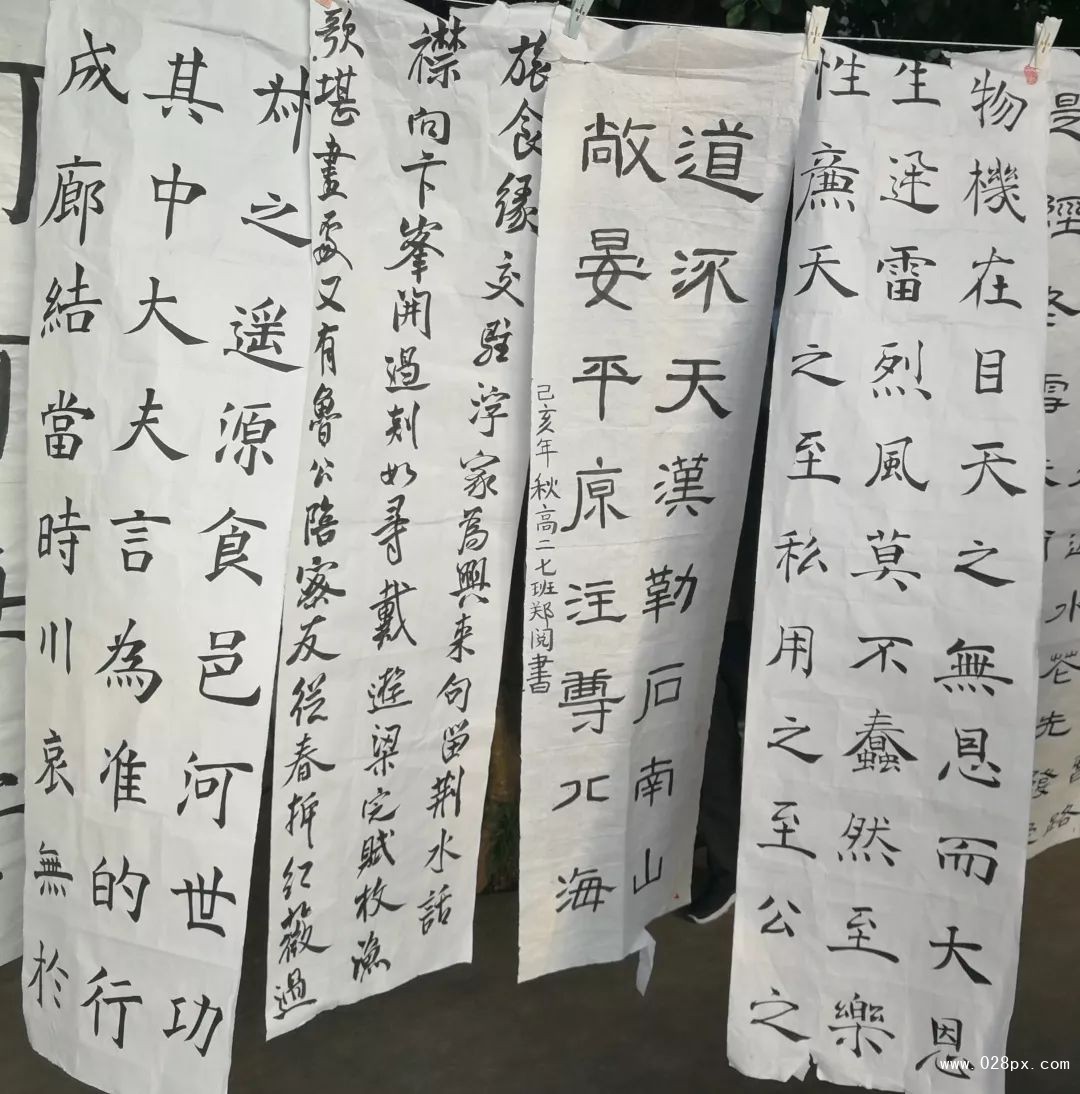 是經冬雪未
近水花先發
物機在目天之無恩而大恩
生迅雷烈風莫不蠢然至樂
性廉天之至私用之至公之
道派天漢勒石南山
敞晏平原注尊北海
己亥年秋高二七班郑阅書
旅食緣交駐浮家為興来句留荆水話
襟向卞峯開過剡如尋戴遊梁定賦枚漁
歌堪畫處又有魯公陪密友從春拆紅薇過
之遥源食邑河世功
其中大夫言為准的行
成廊結當時川哀無於
www.028px.com